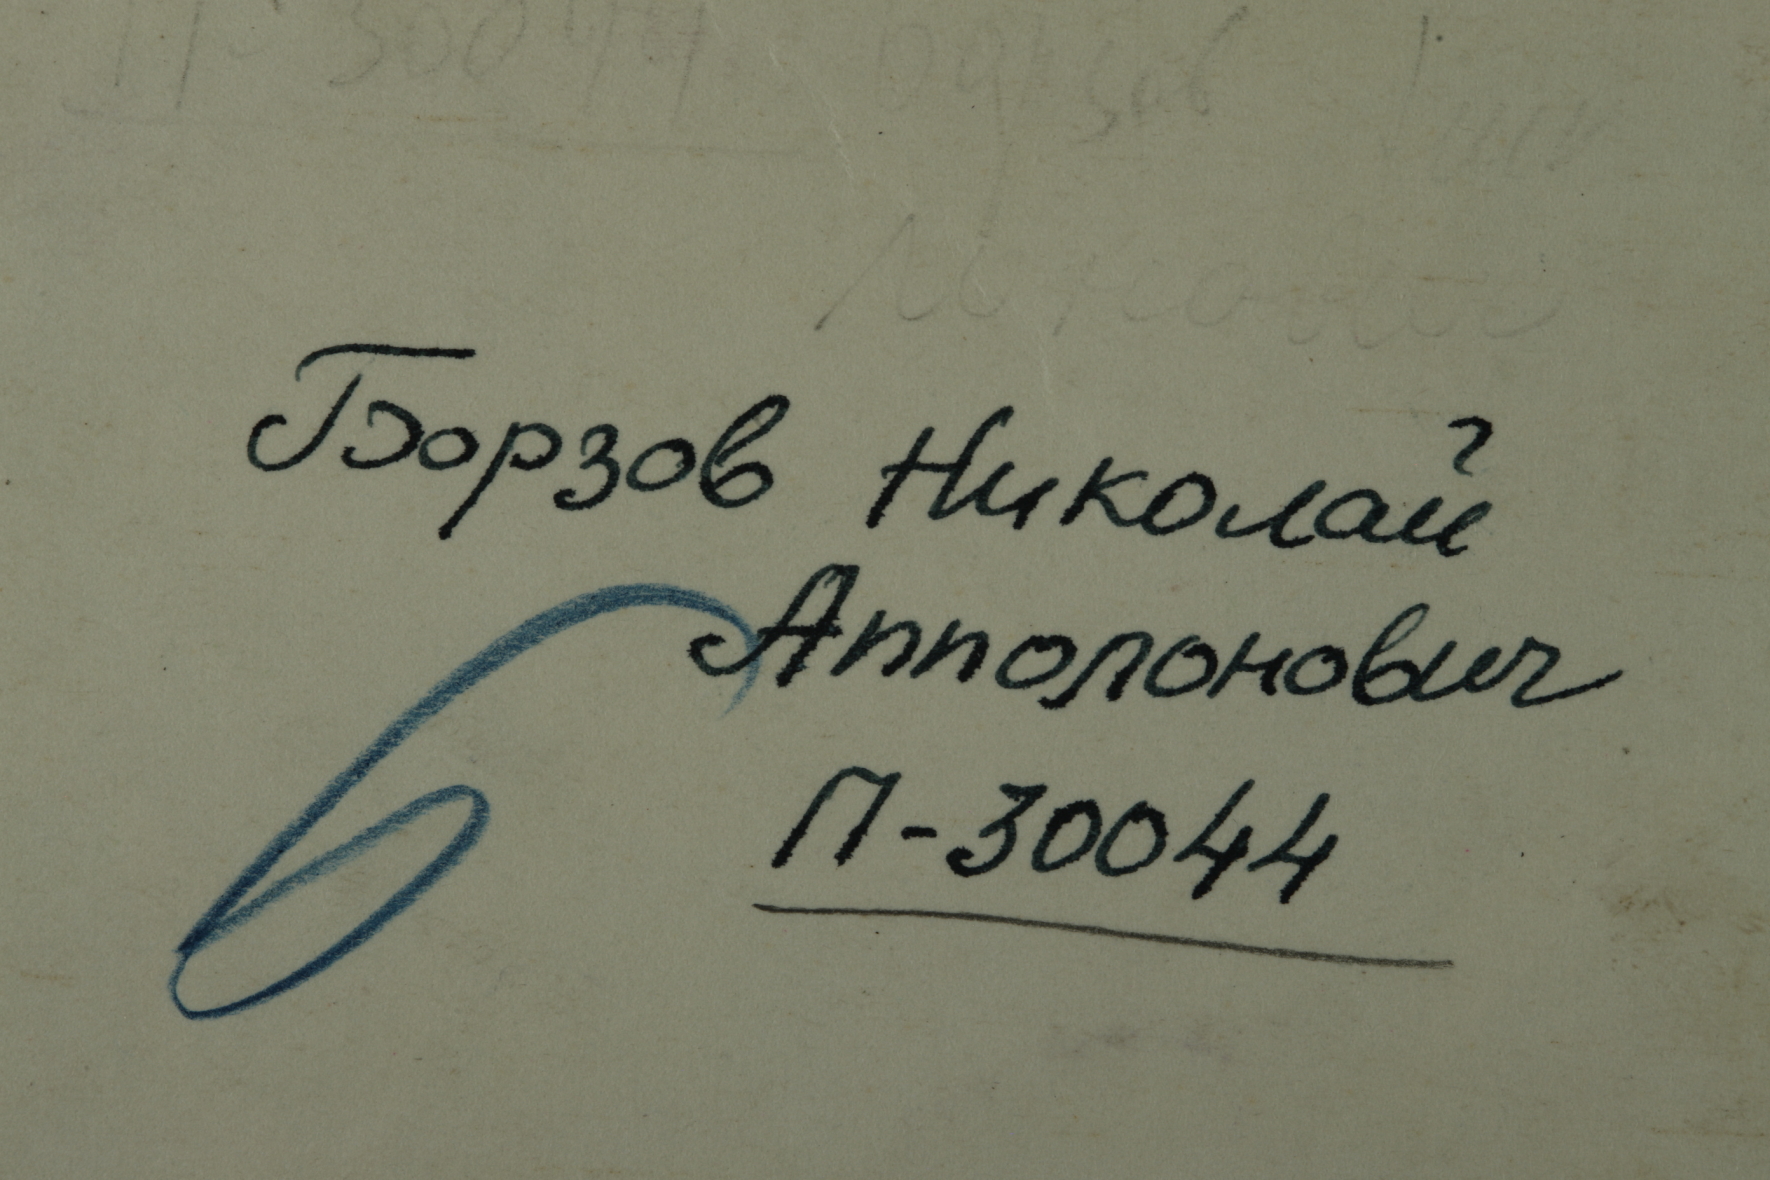 П-30044
Борзов Николай
Апполонович
П-30044